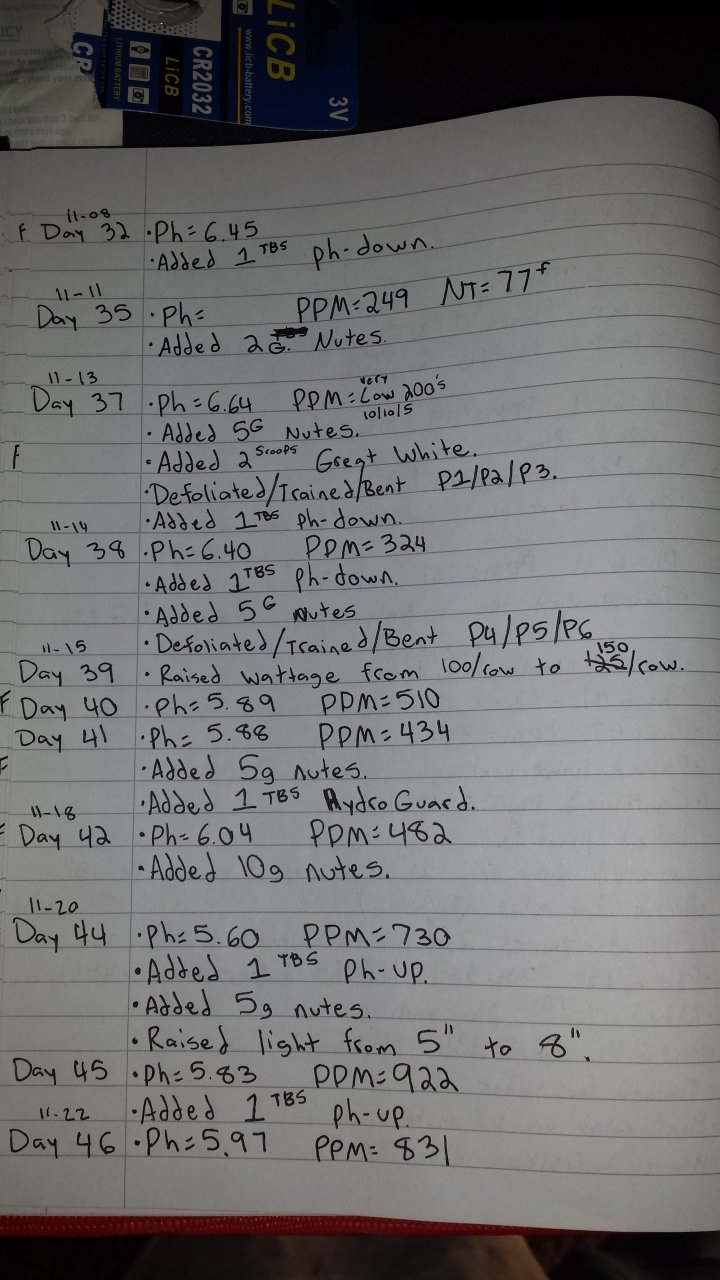 ICY
LiCB
www.licb-battery.com
3V
CR2032
LiCB
LITHIUM BATTERY
11-08
F Day 32 •Ph= 6.45
•Added 1 TBS ph-down.
11-11
Day 35 •Ph= PPM=249 NT= 77f
•Added 2G. Nutes.
11-13
Day 37 •Ph=6.64 PPM= very Low 200's
10/10/5
•Added 5G Nutes.
F •Added 2 Scoops Great White.
•Defoliated/Trained/Bent P1/P2/P3.
•Added 1 TBS ph-down.
11-14
Day 38 •Ph=6.40 PPM=324
•Added 1 TBS ph-down.
•Added 5G nutes
•Defoliated/Trained/Bent P4/P5/P6
11-15
Day 39 •Raised wattage from 100/row to 125 150/row.
F Day 40 •Ph= 5.89 PPM=510
Day 41 •Ph= 5.88 PPM=434
F •Added 5g nutes.
•Added 1 TBS HydroGuard.
11-18
F Day 42 •Ph= 6.04 PPM=482
•Added 10g nutes.
11-20
Day 44 •Ph=5.60 PPM=730
•Added 1 TBS ph-up.
•Added 5g nutes.
•Raised light from 5" to 8".
Day 45 •Ph=5.83 PPM=922
•Added 1 TBS ph-up.
11-22
Day 46 •Ph=5.97 PPM= 831